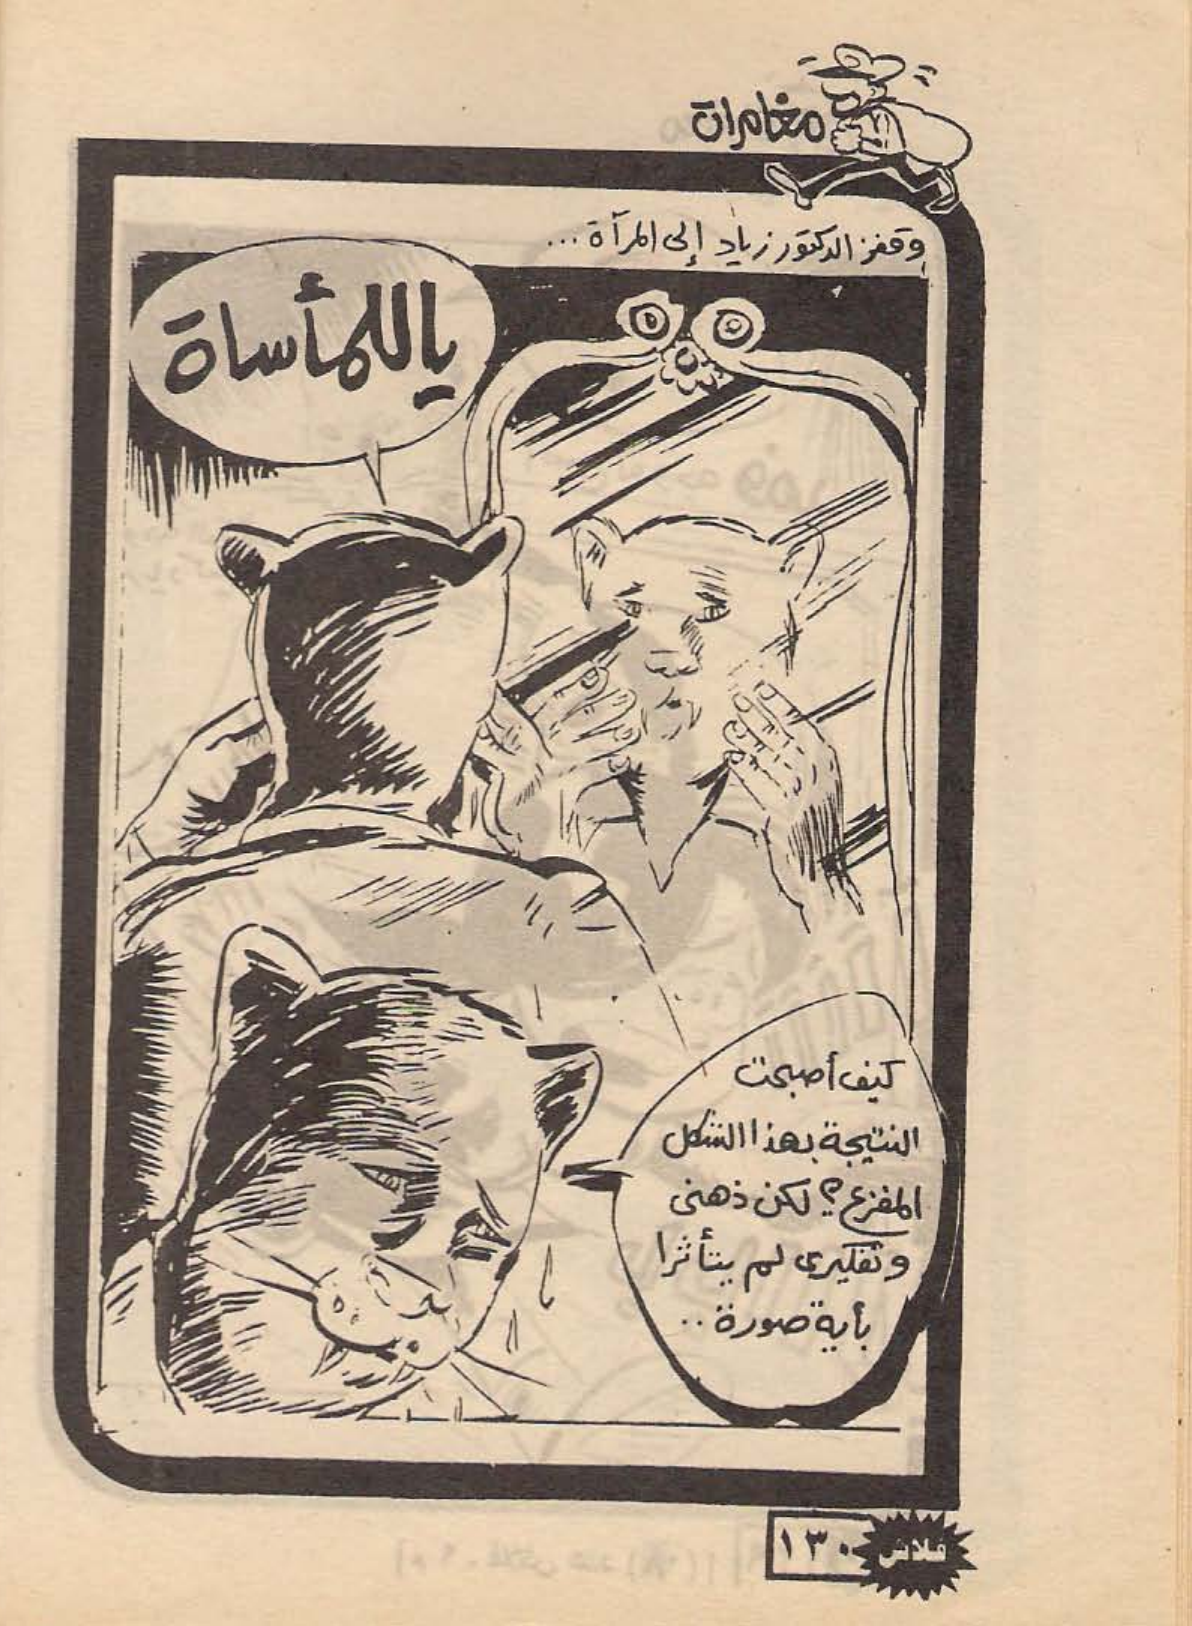 مغامرات
وقفز الدكتور زياد إلى المرآة ...
ياللمأساة
كيف أصبحت
النتيجة بهذا الشكل
المفزع؟ لكن ذهنى
وتفكيرى لم يتأثرا
بأية صورة ..
١٣٠
فلاش